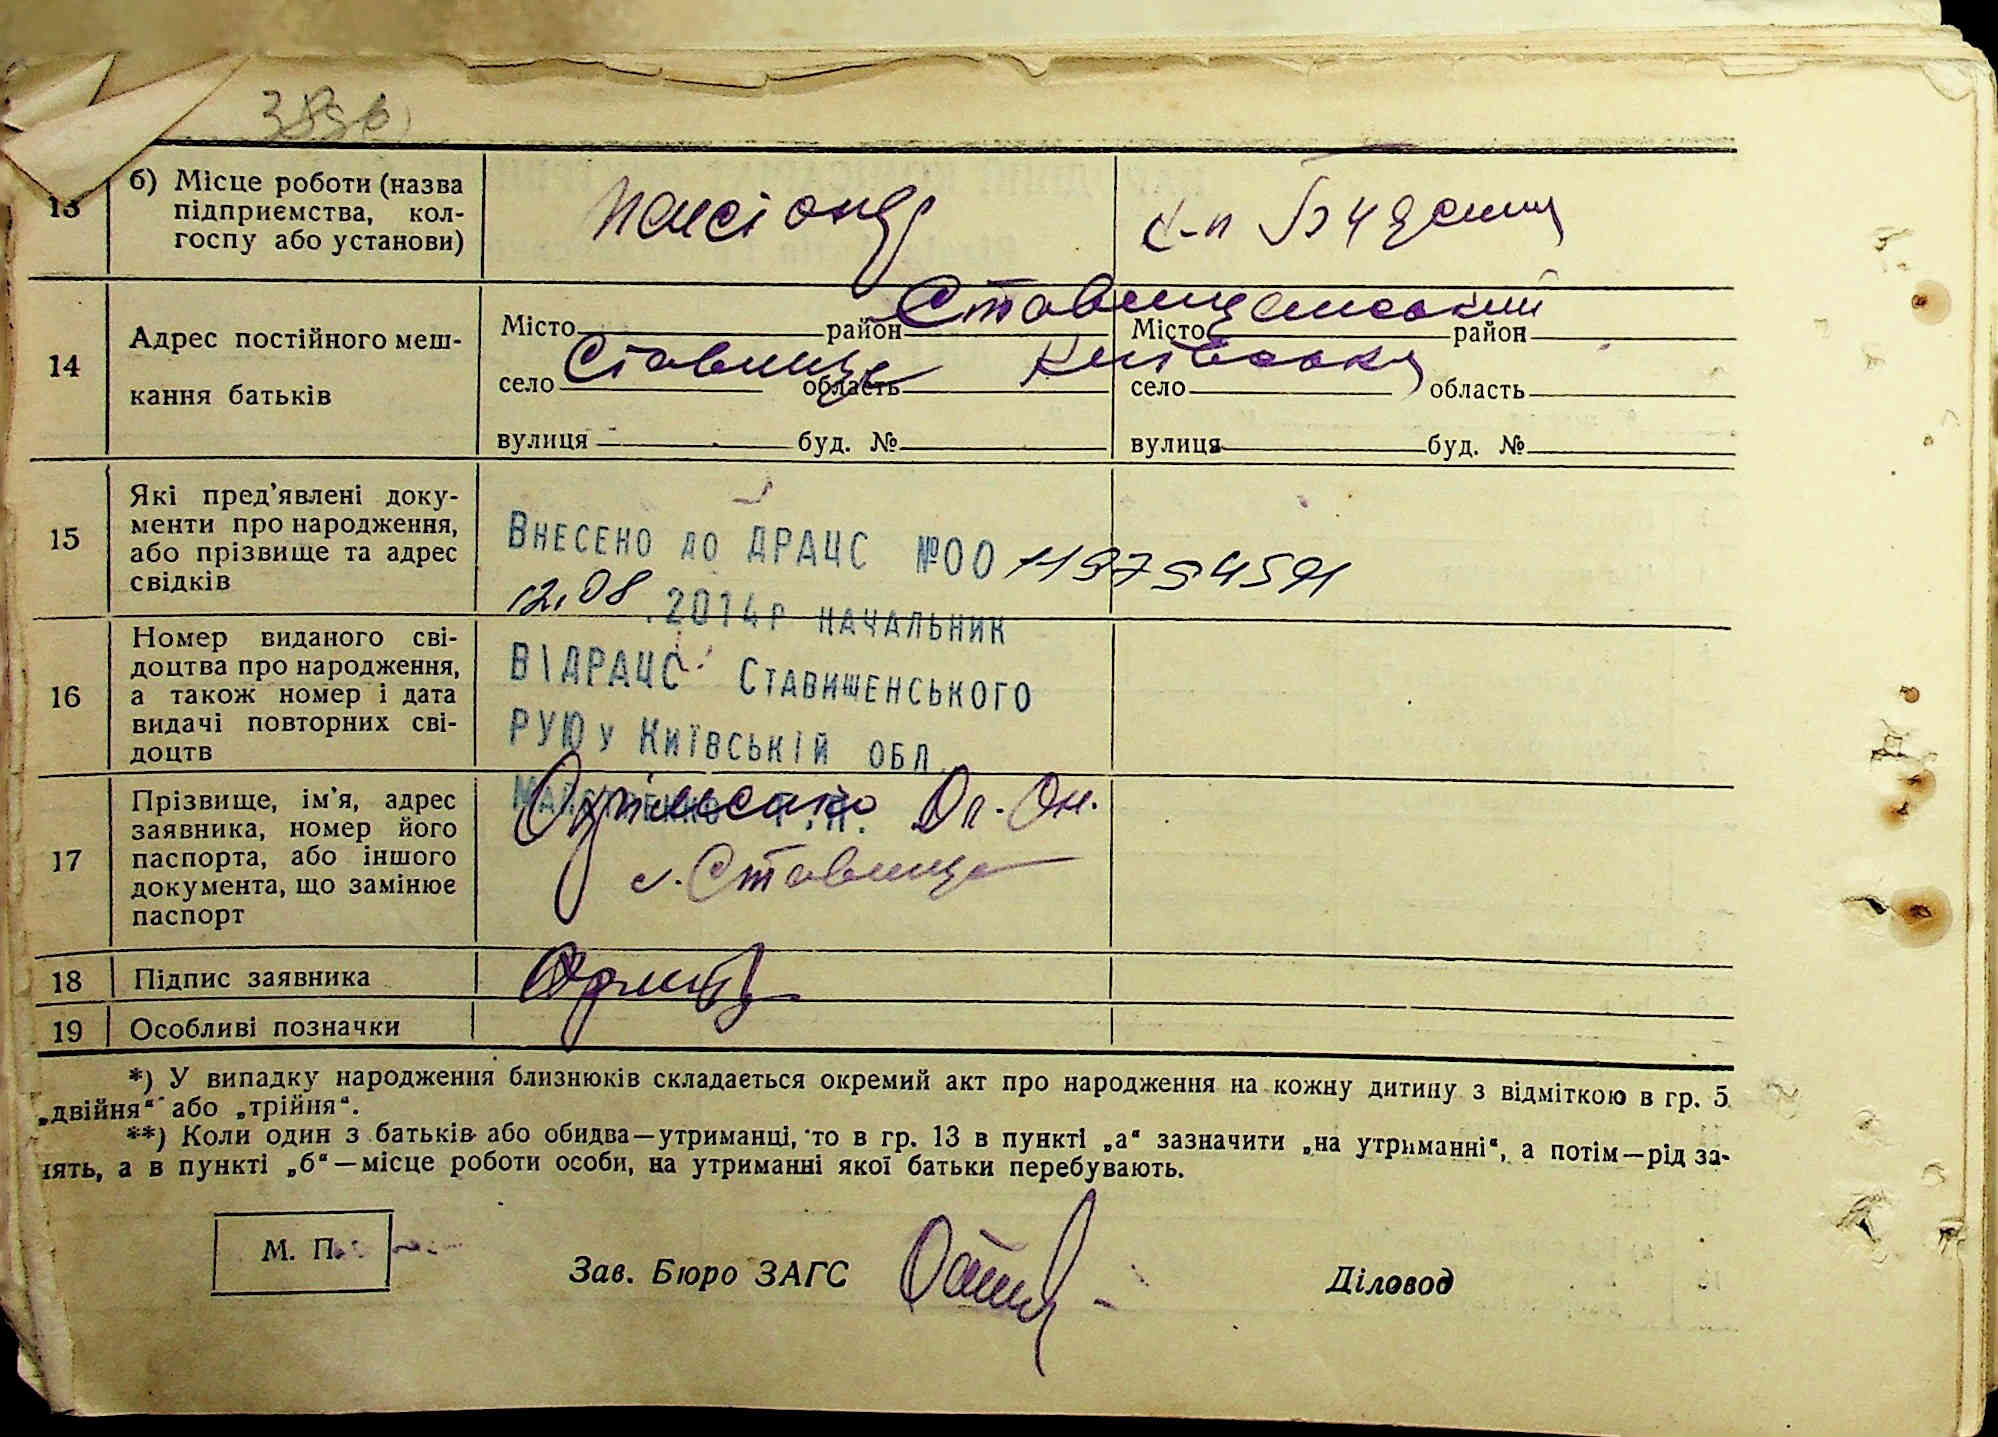 13
б) Місце роботи (назва
підприємства, кол-
госпу або установи)
14
Адрес постійного меш-
кання батьків
Місто район Ставищанський Місто район
село Ставище область Київська село область
вулиця буд. № вулиця буд. №
15
Які пред'явлені доку-
менти про народження,
або прізвище та адрес
свідків
Внесено до ДРАЦС №00
12.08 .2014р начальник
16
Номер виданого сві-
доцтва про народження,
а також номер і дата
видачі повторних сві-
доцтв
ВІДРАЦС Ставишенського
РУЮ у Київській обл.
17
Прізвище, ім'я, адрес
заявника, номер його
паспорта, або іншого
документа, що замінює
паспорт
с. Ставище
18 Підпис заявника
19 Особливі позначки
*) У випадку народження близнюків складається окремий акт про народження на кожну дитину з відміткою в гр. 5
„двійня“ або „трійня“.
**) Коли один з батьків або обидва—утриманці, то в гр. 13 в пункті „а“ зазначити „на утриманні“, а потім—рід за-
нять, а в пункті „б“—місце роботи особи, на утриманні якої батьки перебувають.
М. П.
Зав. Бюро ЗАГС Діловод